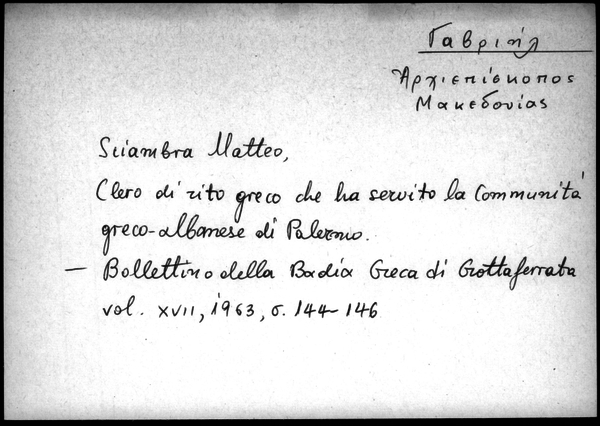 Γαβριήλ
Ἀρχιεπίσκοπος
Μακεδονίας
Sciambra Matteo,
Clero di rito greco che ha servito la Communità
greco-albanese di Palermo.
— Bollettino della Badia Greca di Grottaferrata
vol. XVII, 1963, σ. 144-146